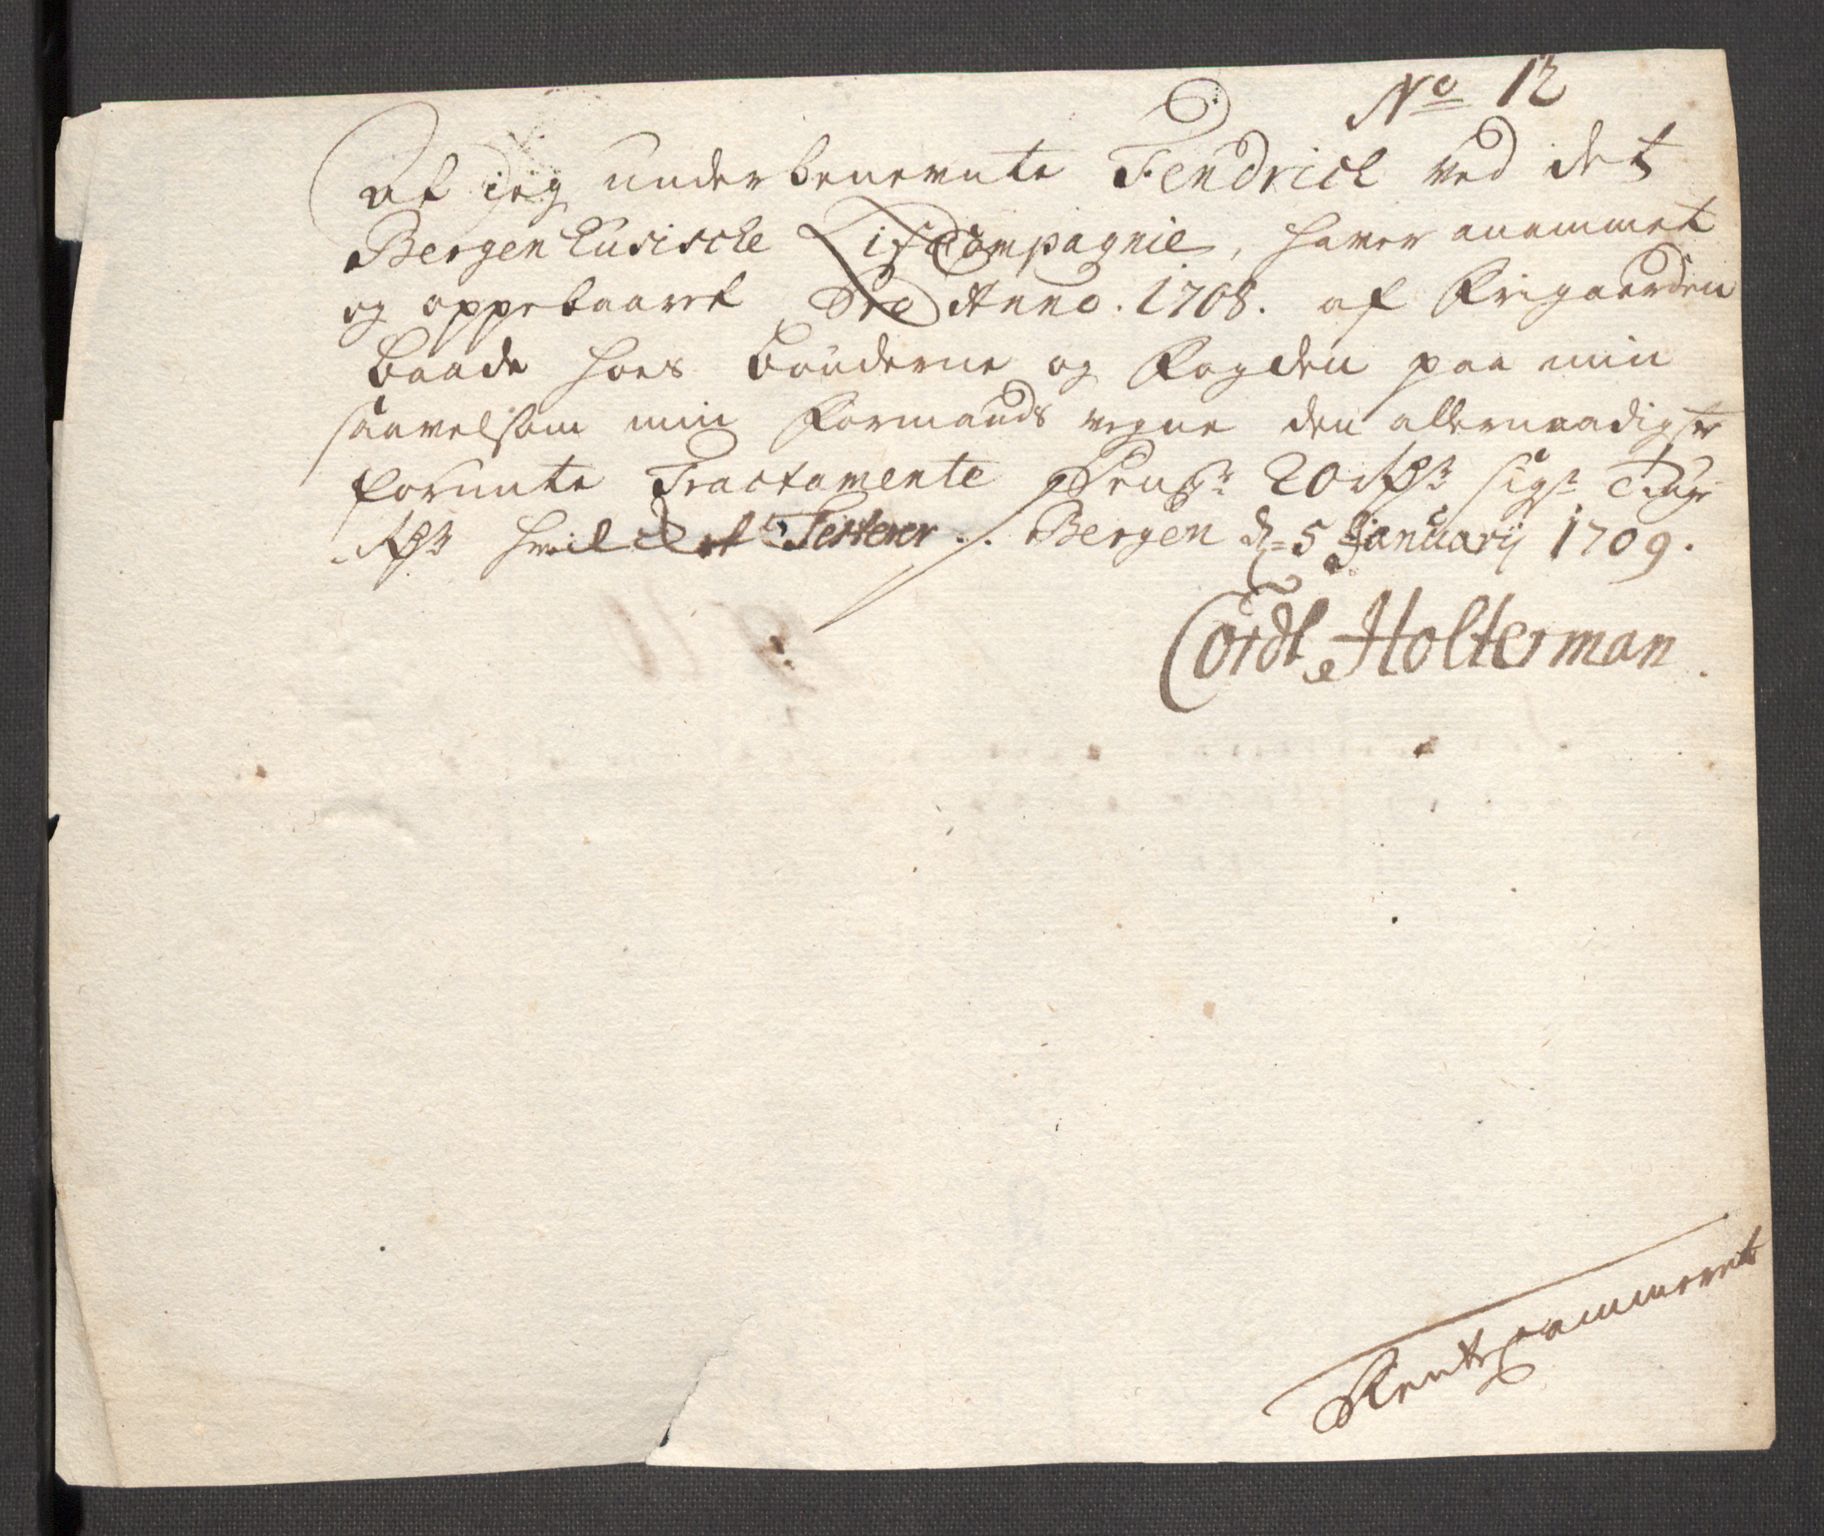 No 12
At jeg underbenevnte Fendrich ved det
Bergenhusische Lifcompagnie, haver anammet
og oppebaaret Pro Anno. 1708. af Frigaarden
baade hoes bønderne og Fogden paa min
saavelsom min Formands vegne den allernaadigste
forunte Tractamente Penge 20 Rdr siger Tiuge
Rdr hvilcket Testerer. Bergen d. 5 Januarij 1709.
Cordt Holterman.
Rentecammeret